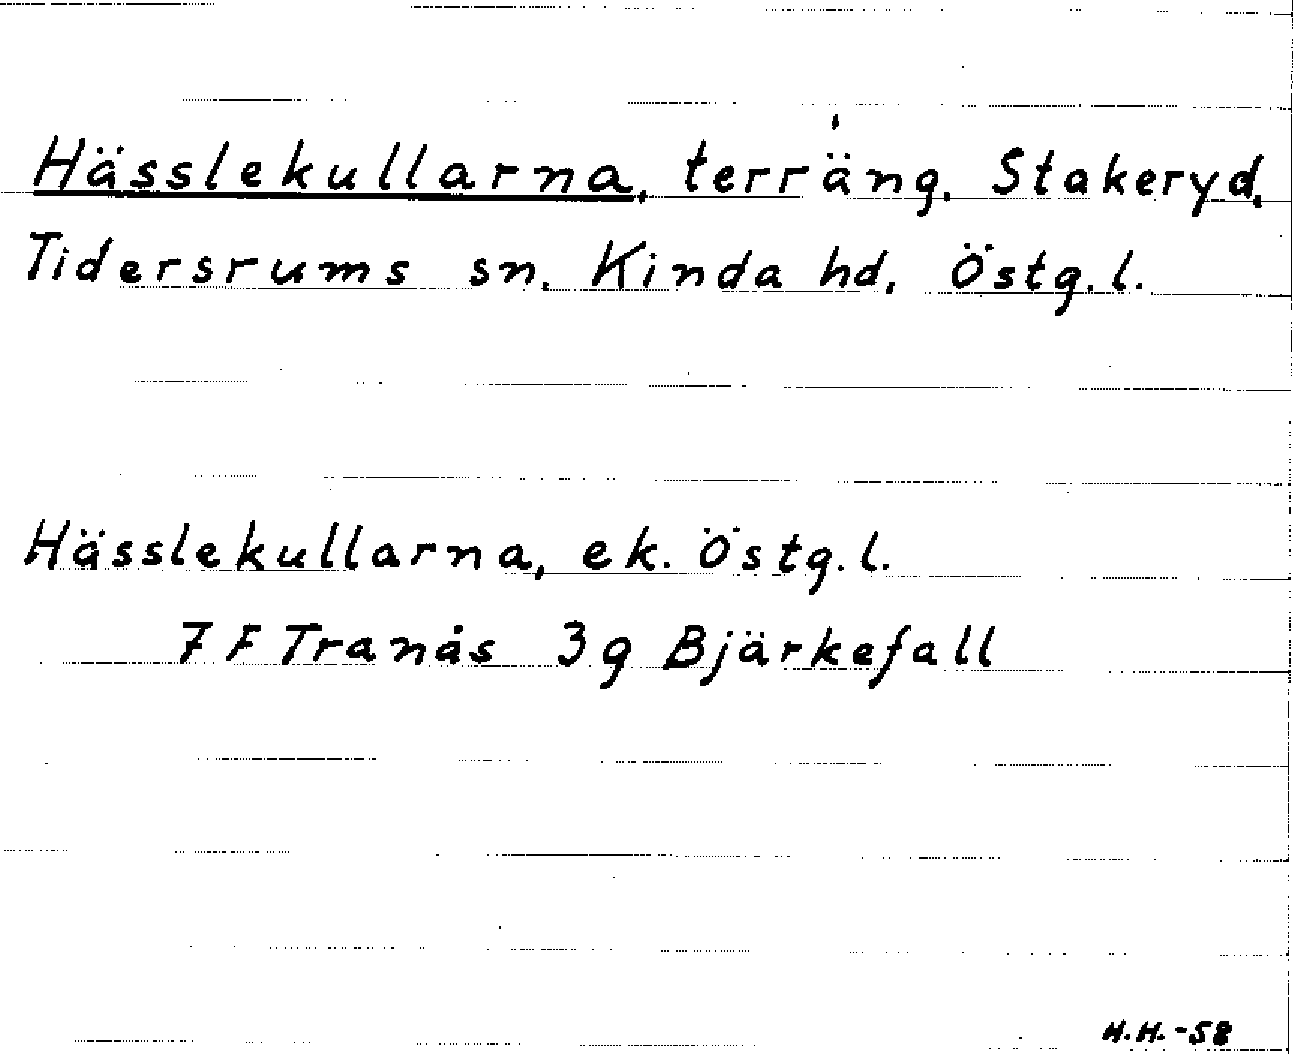 Hässlekullarna, terräng, Stakeryd,
Tidersrums sn, Kinda hd, Östg. l.
Hässlekullarna, ek. Östg. l.
7 F Tranås 3 g Bjärkefall
H.H. -58